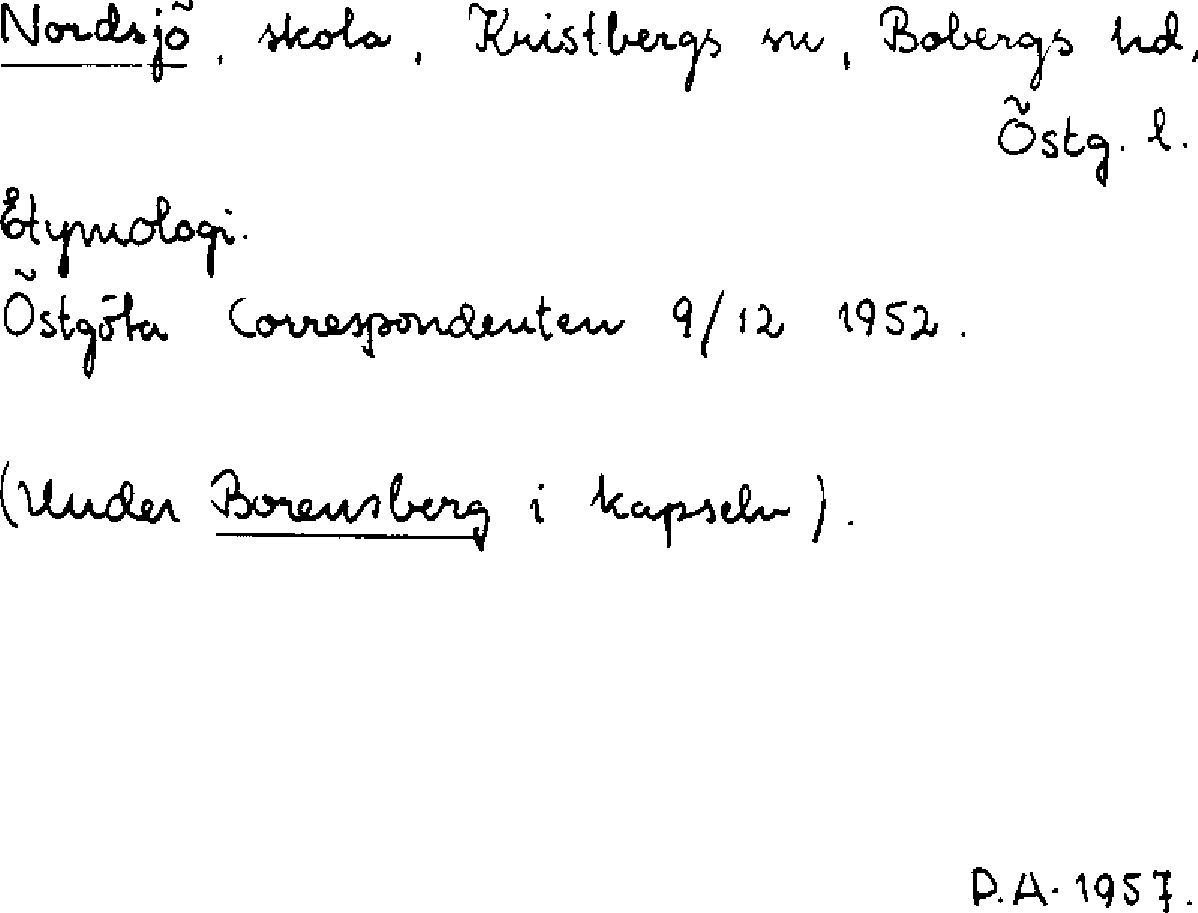 Nordsjö, skola, Kristbergs sn, Bobergs hd,
Östg. l.
Etymologi.
Östgöta Correspondenten 9/12 1952.
(Under Borensberg i kapseln).
D.A. 1957.